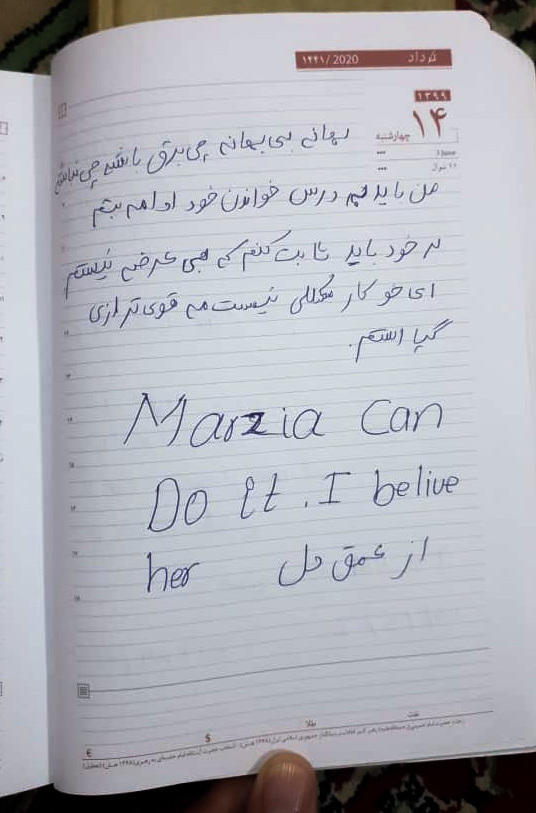 خرداد ۱۴۴۱/2020
۱۳۹۹
۱۴
چهارشنبه
3 June
۱۱ شوال
بهانه بی بهانه چی برق باشه چی نباشه
من باید به درس خواندن خود ادامه بتم
بر خود باید ثابت کنم که بی عرضه نیستم
ای خو کار مکللی نیست مه قوی تر ازی
گپا استم.
Marzia Can
Do It. I belive
her از عمق دل
€ $ طلا نفت